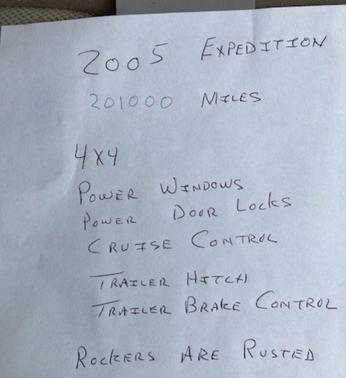 2005 EXPEDITION
201000 MILES
4X4
POWER WINDOWS
POWER DOOR LOCKS
CRUISE CONTROL
TRAILER HITCH
TRAILER BRAKE CONTROL
ROCKERS ARE RUSTED